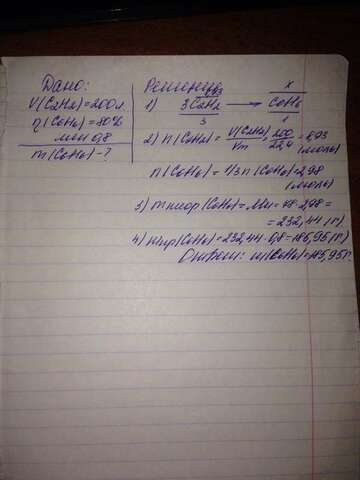 Дано:
V(C2H2)=200л
η(C6H6)=80%
или 0,8
m(C6H6)-?
Решение
8,93 x
1) 3C2H2 → C6H6
3 1
2) n(C2H2)= V(C2H2)/Vm = 200/22,4 = 8,93
(моль)
n(C6H6)=1/3 n(C2H2)=2,98
(моль)
3) m теор(C6H6)=Mn=78·2,98=
=232,44(г)
4) mпр(C6H6)=232,44·0,8=185,95(г)
Ответ: m(C6H6)=185,95г